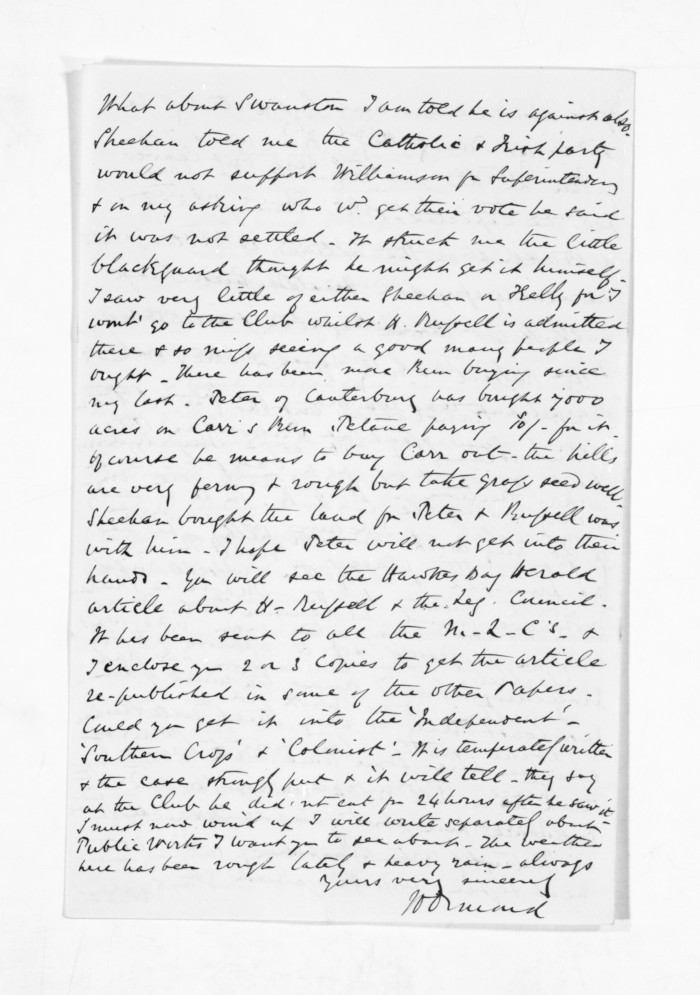 What about Swanston I am told he is against also.
Sheehan told me the Catholic & Irish party
would not support Williamson for Superintendency
& on my asking who wd. get their vote he said
it was not settled - It struck me the little
blackguard thought he might get it himself -
I saw very little of either Sheehan or Kelly for I
wont' go to the Club whilst H. Russell is admitted
there & so miss seeing a good many people I
ought - There has been more Run buying since
my last - Peter of Canterbury has bought 7000
acres on Carr's Run Petane paying 10/- for it -
of course he means to buy Carr out - the hills
are very ferny & rough but take grass seed well -
Sheehan bought the land for Peter & Russell was
with him - I hope Peter will not get into their
hands - You will see the Hawkes Bay Herald
article about H- Russell & the Leg. Council -
It has been sent to all the M-L-C's - &
I enclose you 2 or 3 Copies to get the article
re-published in some of the other Papers -
Could you get it into the 'Independent' -
'Southern Cross' & 'Colonist' - It is temperately written
& the case strongly put & it will tell - they say
at the Club he did'nt eat for 24 hours after he saw it
I must now wind up I will write separately about
Public Works I want you to see about - The weather
here has been rough lately & heavy rain - always
Yours very sincerely
JD Ormond